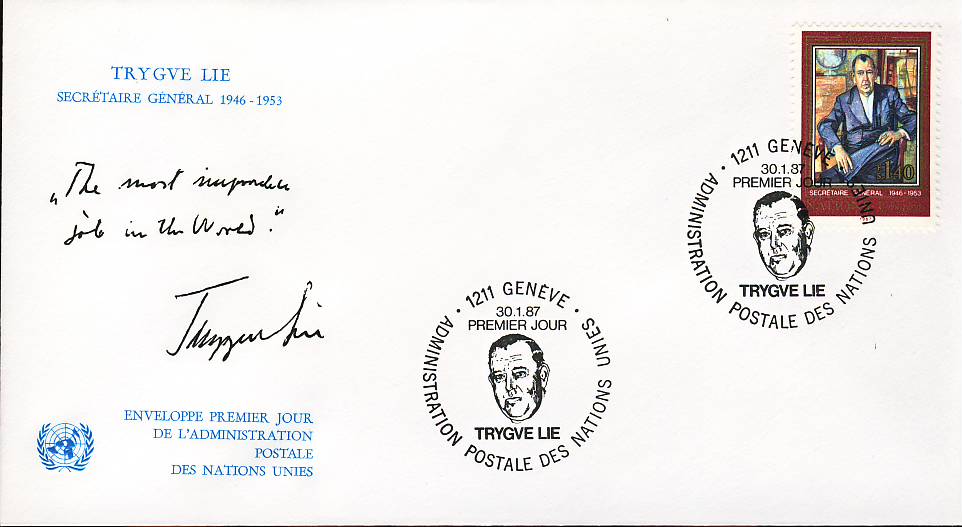 TRYGVE LIE
SECRÉTAIRE GÉNÉRAL 1946-1953
„The most
job in the World."
Trygve Lie
ENVELOPPE PREMIER JOUR
DE L'ADMINISTRATION
POSTALE
DES NATIONS UNIES
1211 GENÈVE
30.1.87
PREMIER JOUR
TRYGVE LIE
ADMINISTRATION POSTALE DES NATIONS UNIES
1211 GENÈVE
30.1.87
PREMIER JOUR
TRYGVE LIE
ADMINISTRATION POSTALE DES NATIONS UNIES
1.40
SECRÉTAIRE GÉNÉRAL 1946-1953